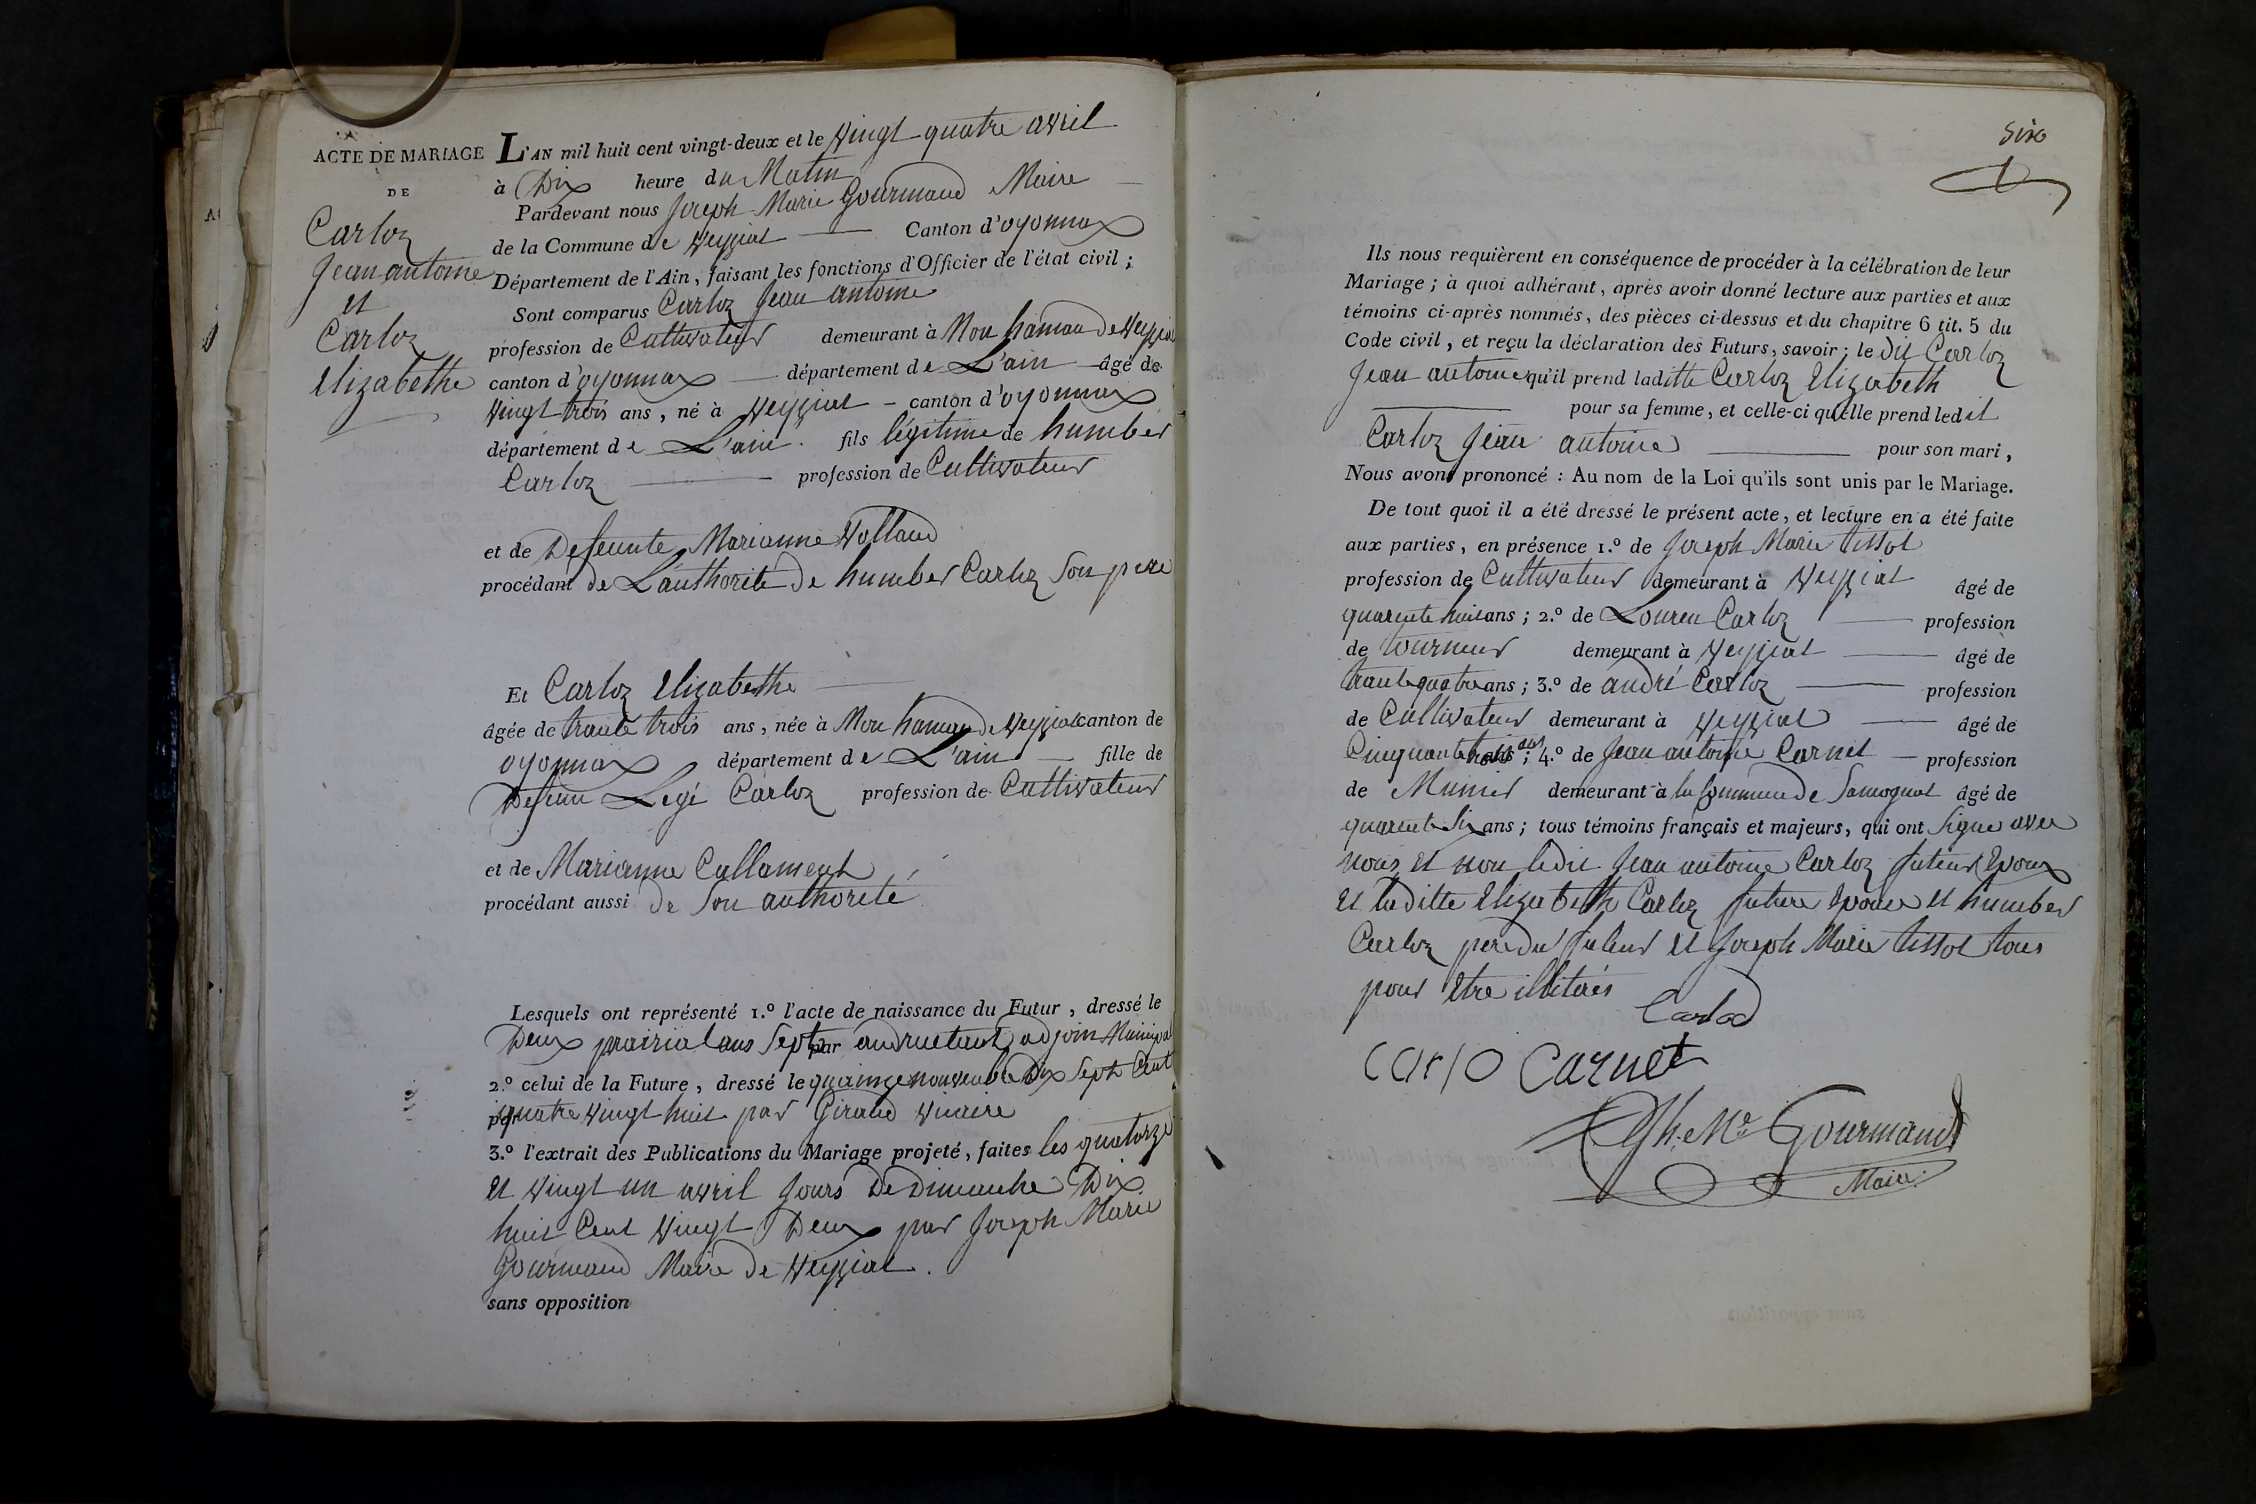 ACTE DE MARIAGE
DE
Carloz
Jean antoine
et
Carloz
Elizabethe
L'AN mil huit cent vingt-deux et le Vingt quatre avril
à Dix heure du Matin
Pardevant nous Joseph Marie Gourmand Maire
de la Commune de Veyziat Canton d'oyonnax
Département de l'Ain, faisant les fonctions d'Officier de l'état civil ;
Sont comparus Carloz Jean antoine
profession de Cultivateur demeurant à Mon hamau de Veyziat
canton d'oyonnax département de L'ain âgé de
Vingt trois ans, né à Veyziat canton d'oyonnax
département de L'ain fils légitime de humber
Carloz profession de Cultivateur
et de Defeunte Marianne Volland
procédant de L'authorité de humber Carloz Son pere
Et Carloz Elizabethe
âgée de trante trois ans, née à Mon hamau de Veyziat canton de
oyonnax département de L'ain fille de
Defeun Legé Carloz profession de Cultivateur
et de Marianne Callament
procédant aussi de Son authorité
Lesquels ont représenté 1.º l'acte de naissance du Futur, dressé le
Deux prairial ans Sept par adjoin Municipal
2.º celui de la Future, dressé le quainze novembre Dix Sept Cent
par quatre Vingt huit par Giraud Vicaire
3.º l'extrait des Publications du Mariage projeté, faites les quatorze
et Vingt un avril Jours De Dimanche Dix
huit Cent Vingt Deux par Joseph Marie
Gourmand Maire De Veyziat.
sans opposition
Six
Ils nous requièrent en conséquence de procéder à la célébration de leur
Mariage ; à quoi adhérant, après avoir donné lecture aux parties et aux
témoins ci-après nommés, des pièces ci-dessus et du chapitre 6 tit. 5 du
Code civil, et reçu la déclaration des Futurs, savoir ; le dit Carloz
Jean antoine qu'il prend laditte Carloz Elizabeth
pour sa femme, et celle-ci qu'elle prend ledit
Carloz Jean antoine pour son mari,
Nous avons prononcé : Au nom de la Loi qu'ils sont unis par le Mariage.
De tout quoi il a été dressé le présent acte, et lecture en a été faite
aux parties, en présence 1.º de Joseph Marie tissot
profession de Cultivateur demeurant à Veyziat âgé de
quarente huit ans ; 2.º de Louren Carloz profession
de tourneur demeurant à Veyziat âgé de
trante quatre ans ; 3.º de andré Carloz profession
de Cultivateur demeurant à Veyziat âgé de
Cinquante trois ans ; 4.º de Jean antoine Carnet profession
de Munier demeurant à la Commune de Samognat âgé de
quarente Six ans ; tous témoins français et majeurs, qui ont Signe avec
nous, et non ledit Jean antoine Carloz futeur Epoux
et laditte Elizabeth Carloz future Epouse et humber
Carloz pere du futeur et Joseph Marie tissot tous
pour Etre illitérés
Carlod
carlo Carnet
Jph. Me. Gourmand
Maire